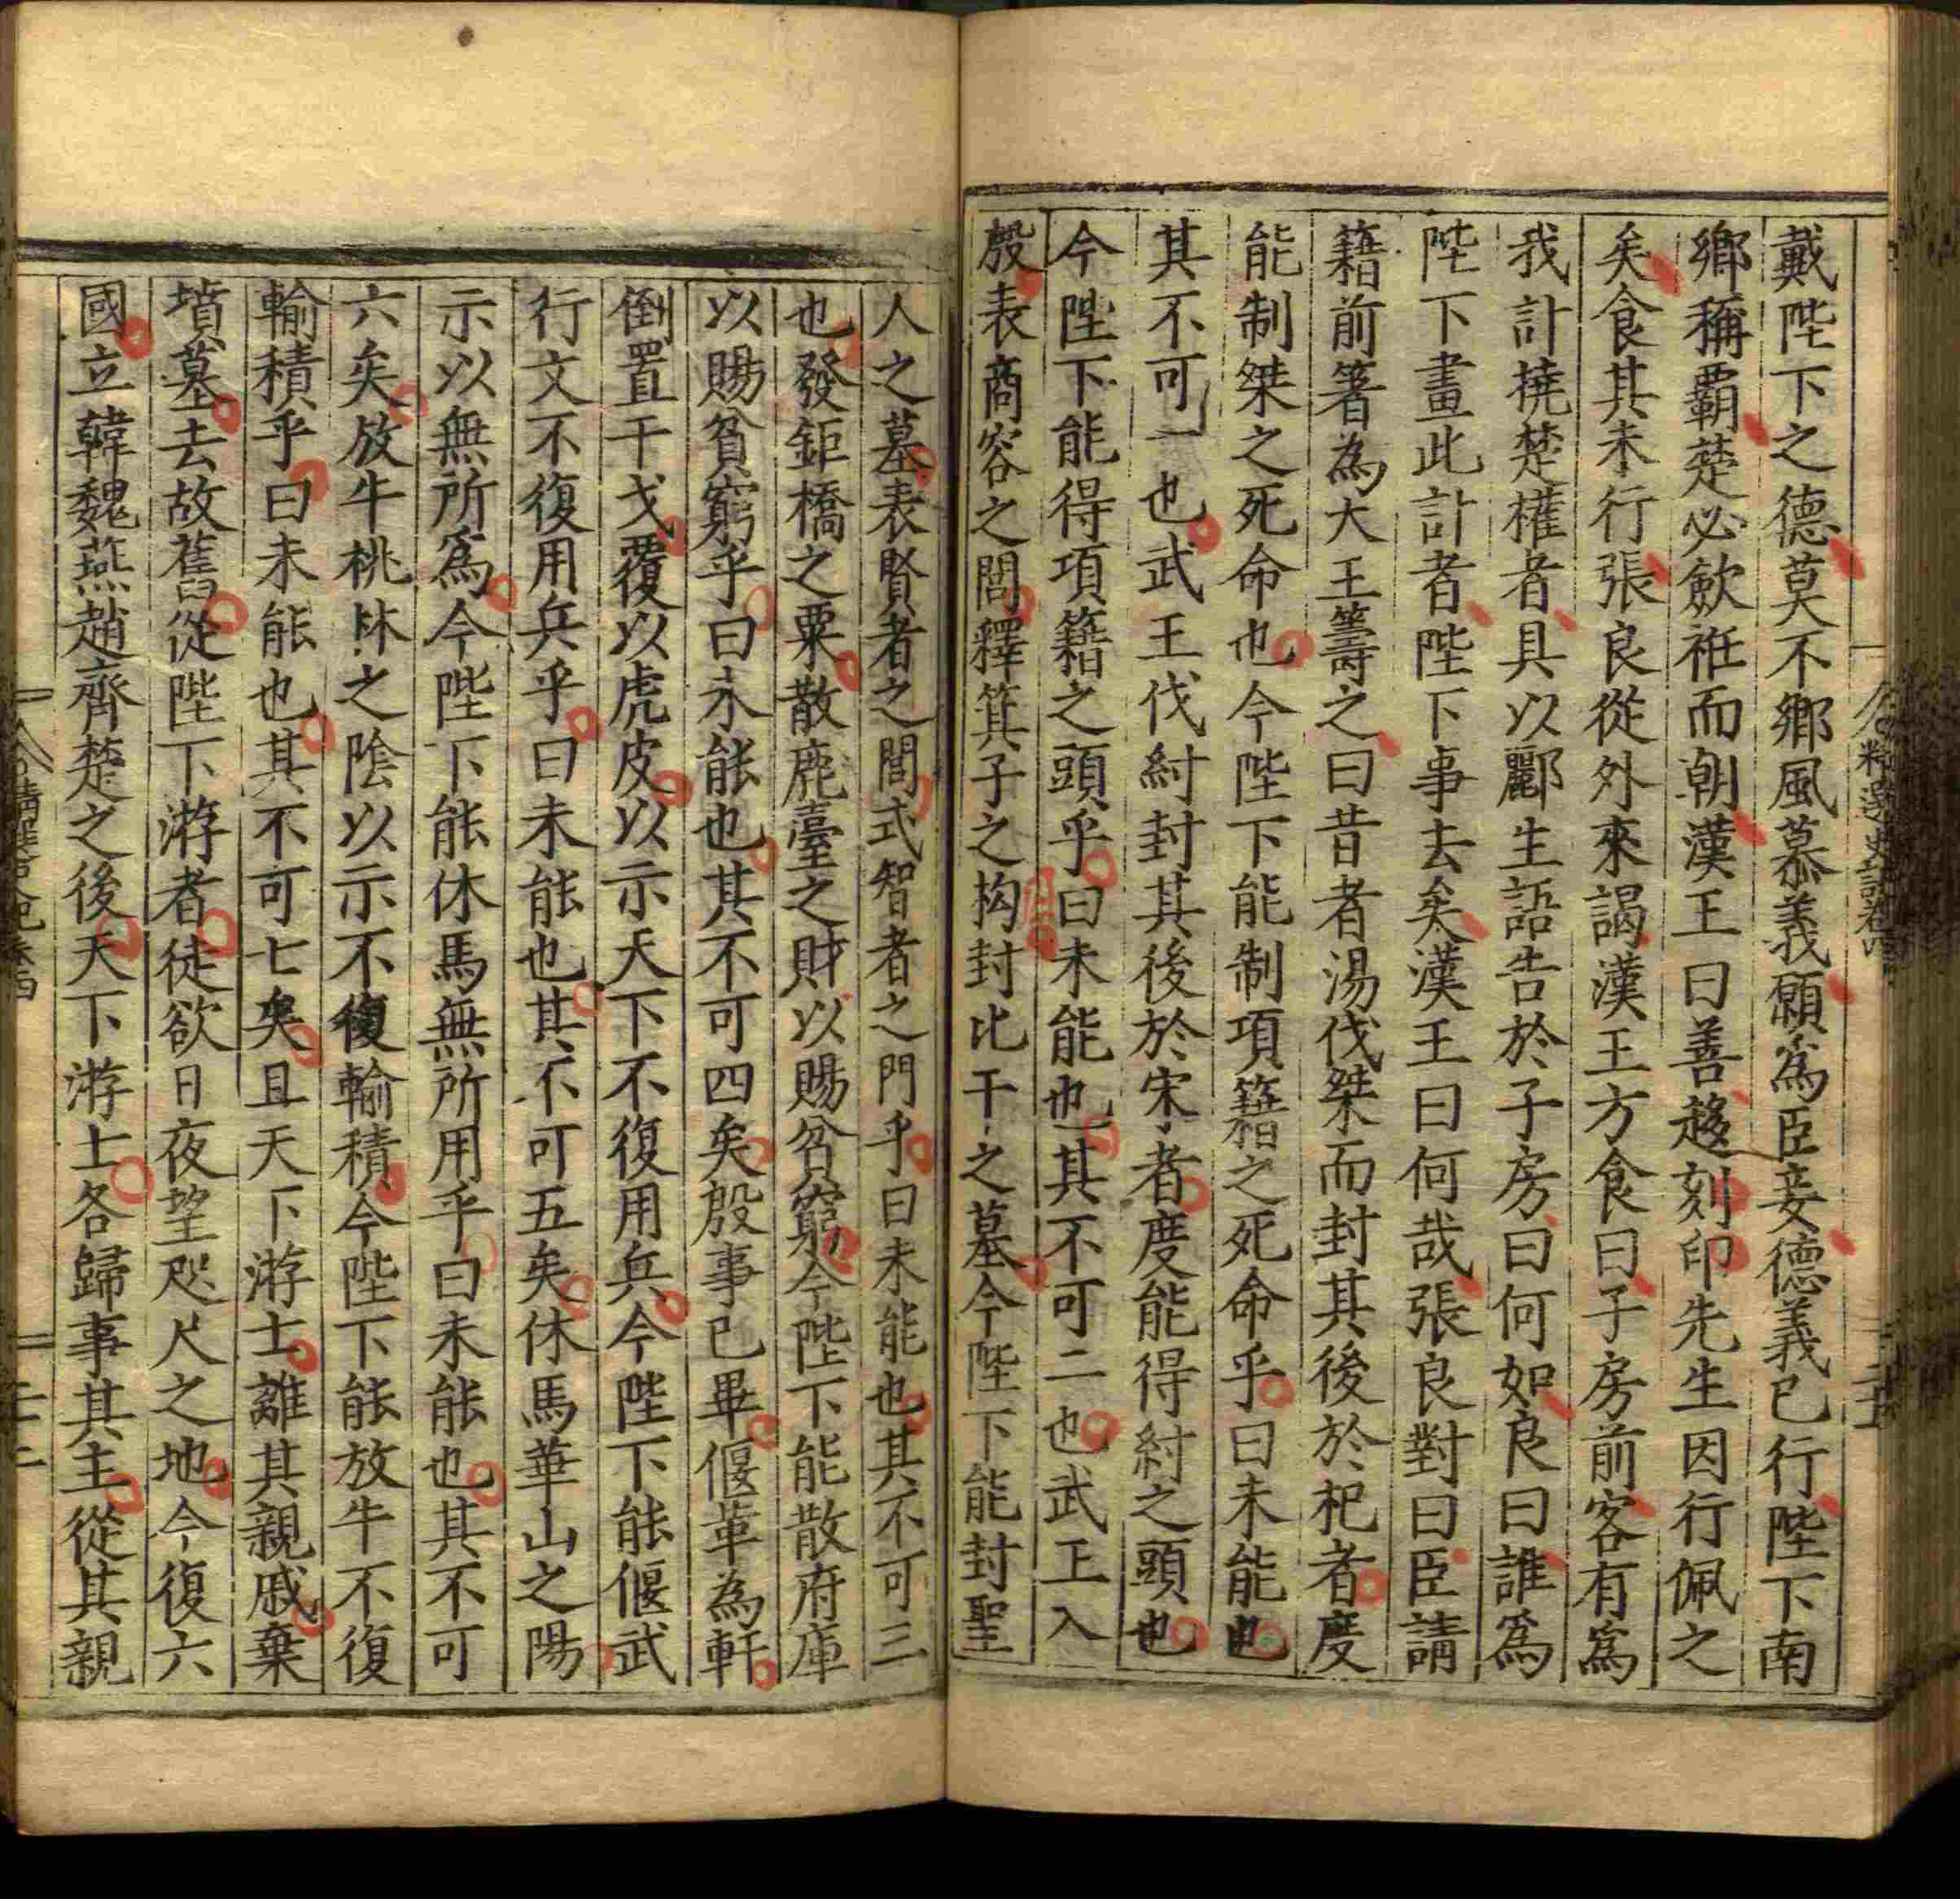 戴陛下之德莫不鄉風慕義願爲臣妾德義已行陛下南
鄉稱覇楚必歛袵而朝漢王曰善趍刻印先生因行佩之
矣食其未行張良從外來謁漢王方食曰子房前客有爲
我計撓楚權者具以酈生語告於子房曰何如良曰誰爲
陛下畫此計者陛下事去矣漢王曰何哉張良對曰臣請
籍前箸為大王籌之曰昔者湯伐桀而封其後於杞者度
能制桀之死命也今陛下能制項籍之死命乎曰未能也
其不可一也武王伐紂封其後於宋者度能得紂之頭也
今陛下能得項籍之頭乎曰未能也其不可二也武王入
殷表商容之閭釋箕子之拘封比干之墓今陛下能封聖
人之墓表賢者之閭式智者之門乎曰未能也其不可三
也發鉅橋之粟散鹿臺之財以賜貧窮今陛下能散府庫
以賜貧窮乎曰未能也其不可四矣殷事已畢偃革為軒
倒置干戈覆以虎皮以示天下不復用兵今陛下能偃武
行文不復用兵乎曰未能也其不可五矣休馬華山之陽
示以無所爲今陛下能休馬無所用乎曰未能也其不可
六矣放牛桃林之陰以示不復輸積今陛下能放牛不復
輸積乎曰未能也其不可七矣且天下游士離其親戚棄
墳墓去故舊從陛下游者徒欲日夜望咫尺之地今復六
國立韓魏燕趙齊楚之後天下游士各歸事其主從其親